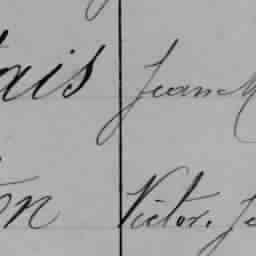 ais Jean M
on Victor, Je